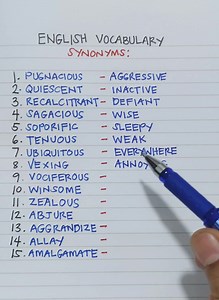 ENGLISH VOCABULARY
SYNONYMS:
1. PUGNACIOUS - AGGRESSIVE
2. QUIESCENT - INACTIVE
3. RECALCITRANT - DEFIANT
4. SAGACIOUS - WISE
5. SOPORIFIC - SLEEPY
6. TENUOUS - WEAK
7. UBIQUITOUS - EVERYWHERE
8. VEXING - ANNOY
9. VOCIFEROUS -
10. WINSOME -
11. ZEALOUS -
12. ABJURE -
13. AGGRANDIZE -
14. ALLAY -
15. AMALGAMATE -